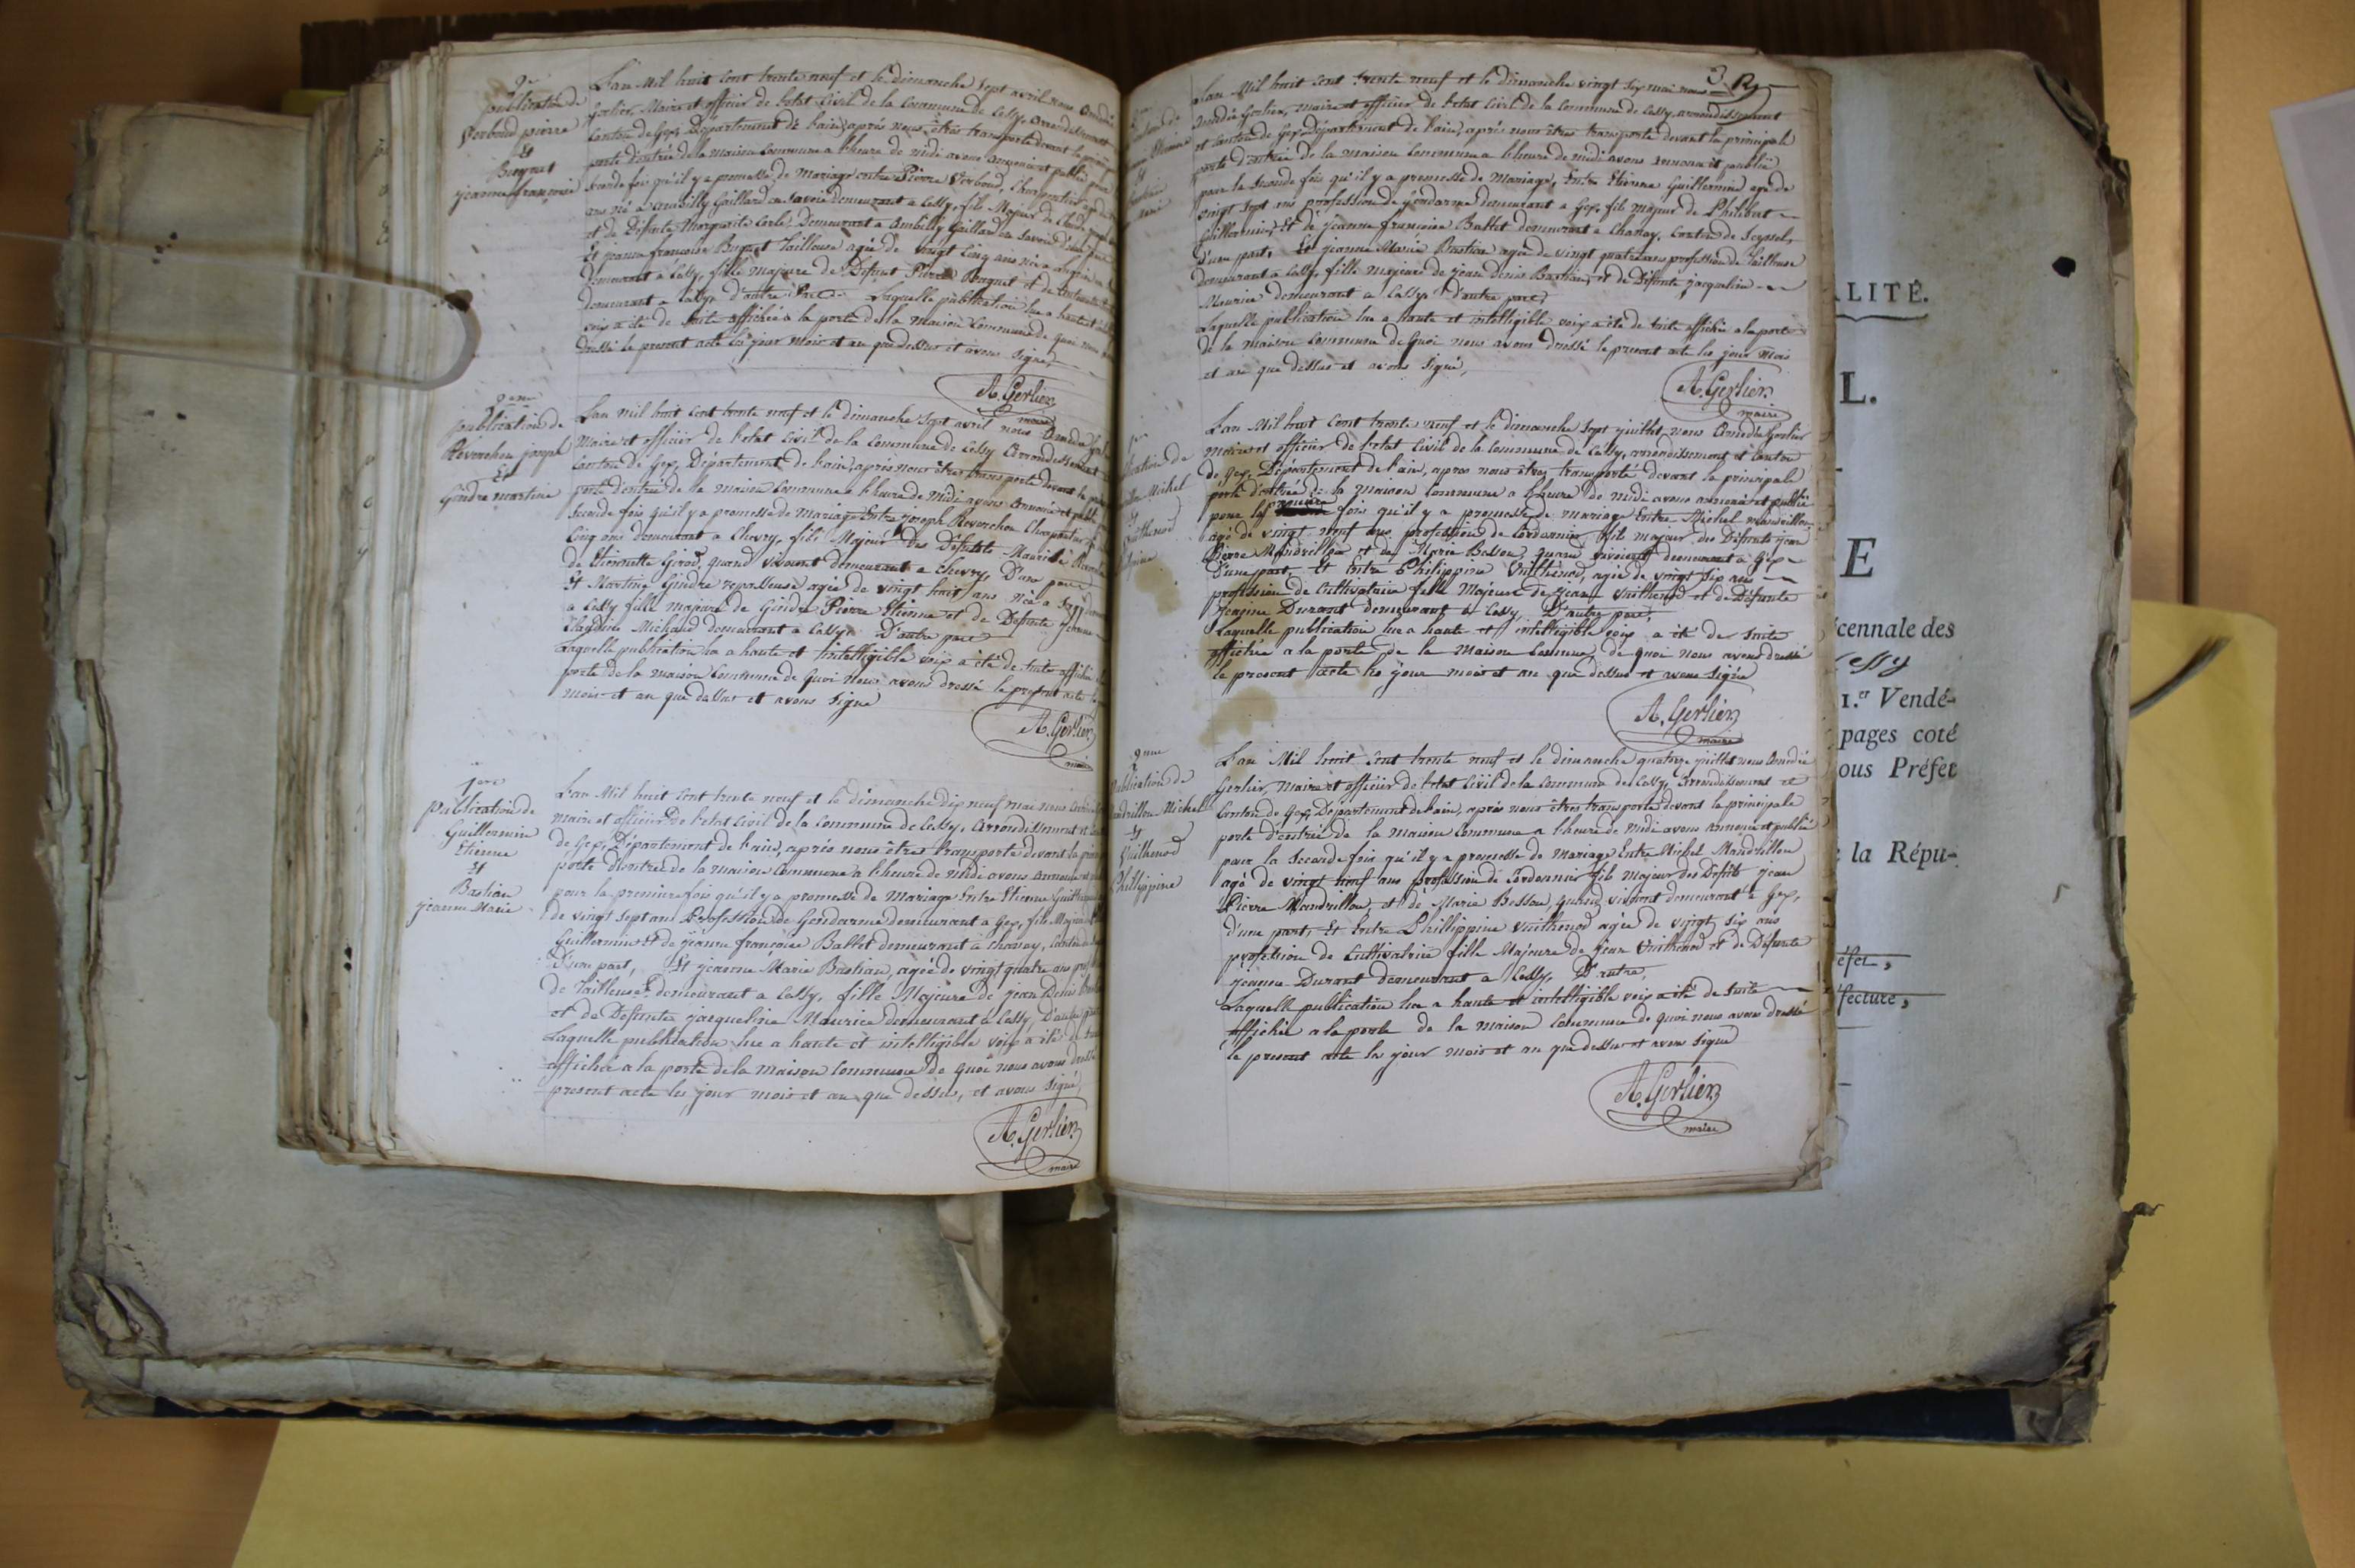 2e
publication de
Verboud pierre
Et
Buquet
jeanne françoise
L'an Mil huit Cent trente neuf et le dimanche Sept avril nous Amédée
Gerlier, Maire et officier de l'etat Civil de la Commune de Cessy, Arrondissement
Canton de Gex, Département de l'ain, après nous êtres transporté devant la
porte d'entrée de la maison Commune a l'heure de midi avons annoncé et publié pour
seconde fois qu'il y a promesse de Mariage entre Pierre Verboud, Charpentier
ans né a Gaillard en Savoie demeurant a Cessy, fils Majeur de Claude
et de Défunte Marguerite Demeurant a Ambilly Gaillard en Savoie D'une part
Et jeanne françoise Buquet Tailleuse agée de vingt Cinq ans née a
demeurant a Cessy, fille majeure de Défunt Pierre Buquet et de
demeurant a Cessy, d'autre Part. Laquelle publication lue a haute et
voix a été de suite affichée a la porte de la Maison Commune de quoi nous
dressé le present acte les jour mois et an que dessus et avons Signé,
A. Gerlier
maire
2eme
publication de
Réverchon joseph
Et
Gindre martine
L'an mil huit Cent trente neuf et le dimanche Sept avril nous Amédée
Maire et officier de l'etat Civil de la Commune de Cessy Arrondissement
Canton de Gex, Département de l'ain, après nous êtres transporté devant la
porte d'entrée de la maison Commune a l'heure de midi avons Annoncé et publié
Seconde fois qu'il y a promesse de Mariage Entre joseph Reverchon Charpentier
Cinq ans demeurant a Chevry, fils Majeur Des Défunts Maurice
de Pierrette Girod, quand vivoient demeurant a Chevry, D'une part
Et Martine Gindre repasseuse agée de vingt huit ans née a
a Cessy fille majeure de Gindre Pierre Etienne et de Défunte
Claudine Michaud demeurant a Cessy. D'autre part
Laquelle publication lue a haute et Intelligible voix a été de suite affichée
porte de la maison Commune de Quoi nous avons dressé le present acte
mois et an que dessus et avons Signé
A. Gerlier
maire
1ere
publication de
Guillermin
Etienne
Et
Bastian
jeanne Marie
L'an Mil huit Cent trente neuf et le dimanche dix neuf mai nous
maire et officier de l'etat Civil de la Commune de Cessy, Arrondissement et
de Gex, Département de l'ain, après nous êtres transporté devant la
porte d'entrée de la maison Commune a l'heure de midi avons Annoncé et
pour la premiere fois qu'il y a promesse de Mariage Entre Etienne
de vingt Sept ans Profession de Gendarme demeurant a Gex, fils Majeur
Guillermin et de jeanne françoise Ballet demeurant a Chanay, Canton
D'une part, Et jeanne Marie Bastian, agée de vingt quatre ans
de Tailleuse demeurant a Cessy, fille Majeure de jean Denis
et de Défunte jacqueline Maurice demeurant a Cessy, D'autre
Laquelle publication lue a haute et intelligible voix a été de
affichée a la porte de la Maison Commune de quoi nous avons dressé
present acte les jour mois et an que dessus, et avons Signé,
A. Gerlier
maire
3 R
Etienne
Et
L'an Mil huit Cent trente neuf et le dimanche vingt Six mai nous
Amédée Gerlier, maire et officier de l'etat Civil de la Commune de Cessy, arrondissement
et canton de Gex, Département de l'ain, après nous êtres transporté devant la principale
porte d'entrée de la maison Commune a l'heure de midi avons annoncé et publié
pour la seconde fois qu'il y a promesse de mariage, Entre Etienne Guillermin agé de
vingt Sept ans profession de Gendarme demeurant a Gex, fils majeur de Philibert
Guillermin, Et de jeanne françoise Ballet demeurant a Chanay, Canton de Seyssel,
D'une part, Et jeanne Marie Bastian agée de vingt quatre ans profession de Tailleuse
demeurant a Cessy, fille majeure de jean Denis Bastian, et de Défunte jacqueline
Maurice demeurant a Cessy, D'autre part,
Laquelle publication lue a haute et intelligible voix a été de suite affichée a la porte
de la maison Commune de Quoi nous avons dressé le present acte les jour mois
et an que dessus et avons signé,
A. Gerlier
maire
Michel
Et
L'an Mil huit Cent trente neuf et le dimanche Sept juillet nous Amédée Gerlier
maire et officier de l'etat Civil de la Commune de Cessy, arrondissement et Canton
de Gex, Département de l'ain, après nous êtres transporté devant la principale
porte d'entrée de la maison Commune a l'heure de midi avons annoncé et publié
pour la premiere fois qu'il y a promesse de mariage Entre Michel Mandrillon
agé de vingt neuf ans profession de Cordonnier, fils majeur des Défunts jean
Pierre Mandrillon et de Marie Besson, quand vivoient demeurant a Gex
D'une part, Et Entre Philippine Vuithenod, agée de vingt Six ans
profession de Cultivatrice fille Majeure de jean Vuithenod et de Défunte
jeanne Durant demeurant a Cessy, D'autre part,
Laquelle publication lue a haute et intelligible voix a été de suite
affichée a la porte de la Maison Commune de quoi nous avons dressé
le present acte les jour mois et an que dessus et avons Signé
A. Gerlier
maire
2eme
publication de
Mandrillon Michel
Et
Vuithenod
Phillippine
L'an Mil huit Cent trente neuf et le dimanche quatorze juillet nous Amédée
Gerlier, maire et officier de l'etat Civil de la Commune de Cessy, Arrondissement et
Canton de Gex, Département de l'ain, après nous êtres transporté devant la principale
porte d'entrée de la maison Commune a l'heure de midi avons annoncé et publié
pour la seconde fois qu'il y a promesse de Mariage Entre Michel Mandrillon
agé de vingt neuf ans profession de Cordonnier fils majeur des Défunts jean
Pierre Mandrillon et de Marie Besson, quand vivoient demeurant a Gex,
d'une part, Et Entre Phillippine Vuithenod agée de vingt Six ans
profession de Cultivatrice fille Majeure de jean Vuithenod et de Défunte
jeanne Durant demeurant a Cessy, D'autre,
Laquelle publication lue a haute et intelligible voix a été de suite
affichée a la porte de la maison Commune de quoi nous avons dressé
le present acte les jour mois et an que dessus et avons Signé
A. Gerlier
maire
LITÉ.
L.
E
cennale des
Cessy
1.er Vendé-
pages coté
ous Préfet
la Répu-
éfet,
fecture,